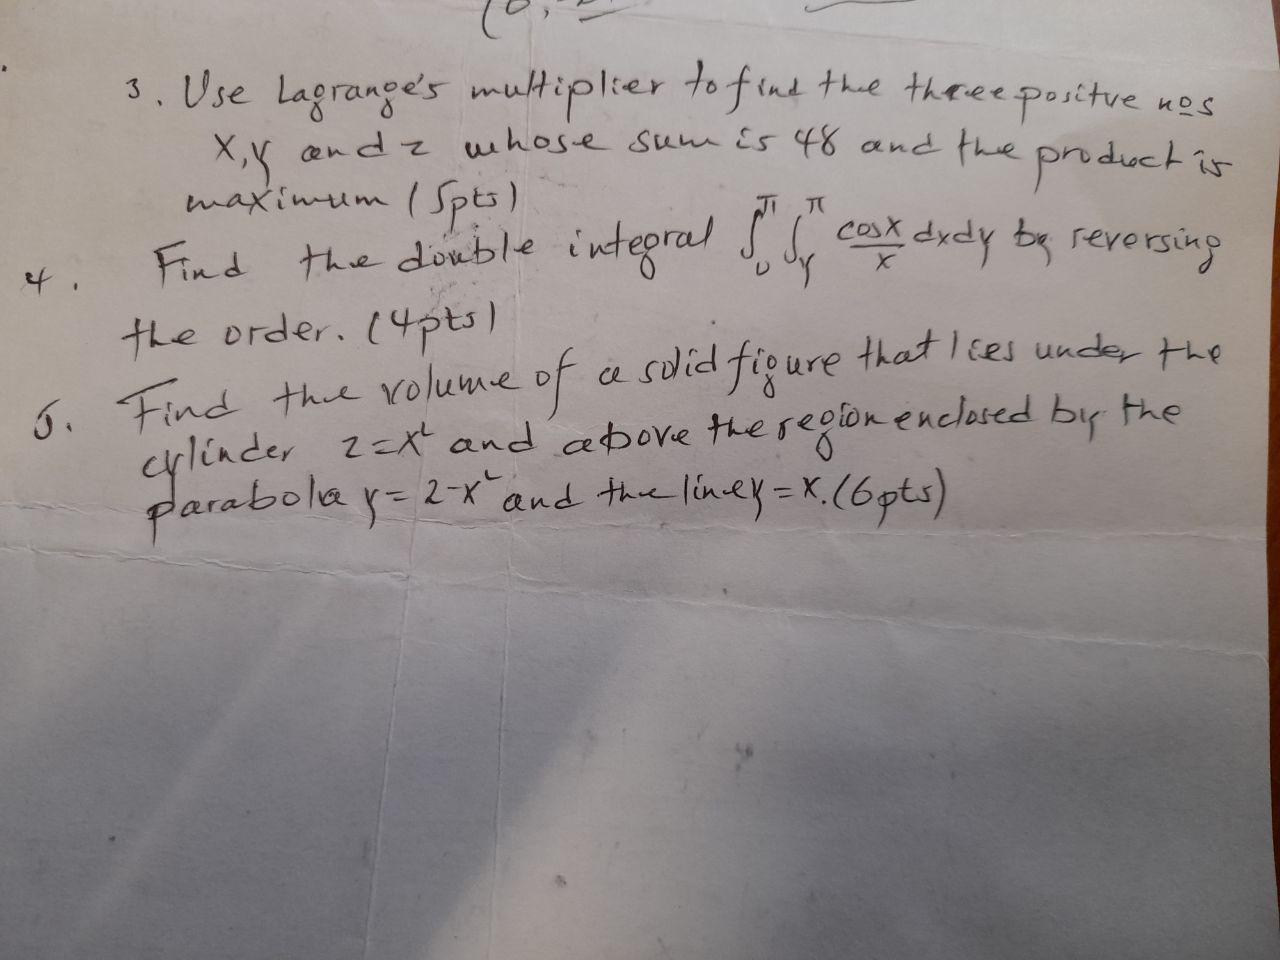 3. Use Lagrange's multiplier to find the three positve nos
x, y and z whose sum is 48 and the product is
maximum (5pts)
4. Find the double integral ∫₀^π ∫_y^π cosx/x dxdy by reversing
the order. (4pts)
5. Find the volume of a solid figure that lies under the
cylinder z=x² and above the region enclosed by the
parabola y=2-x² and the line y=x. (6pts)